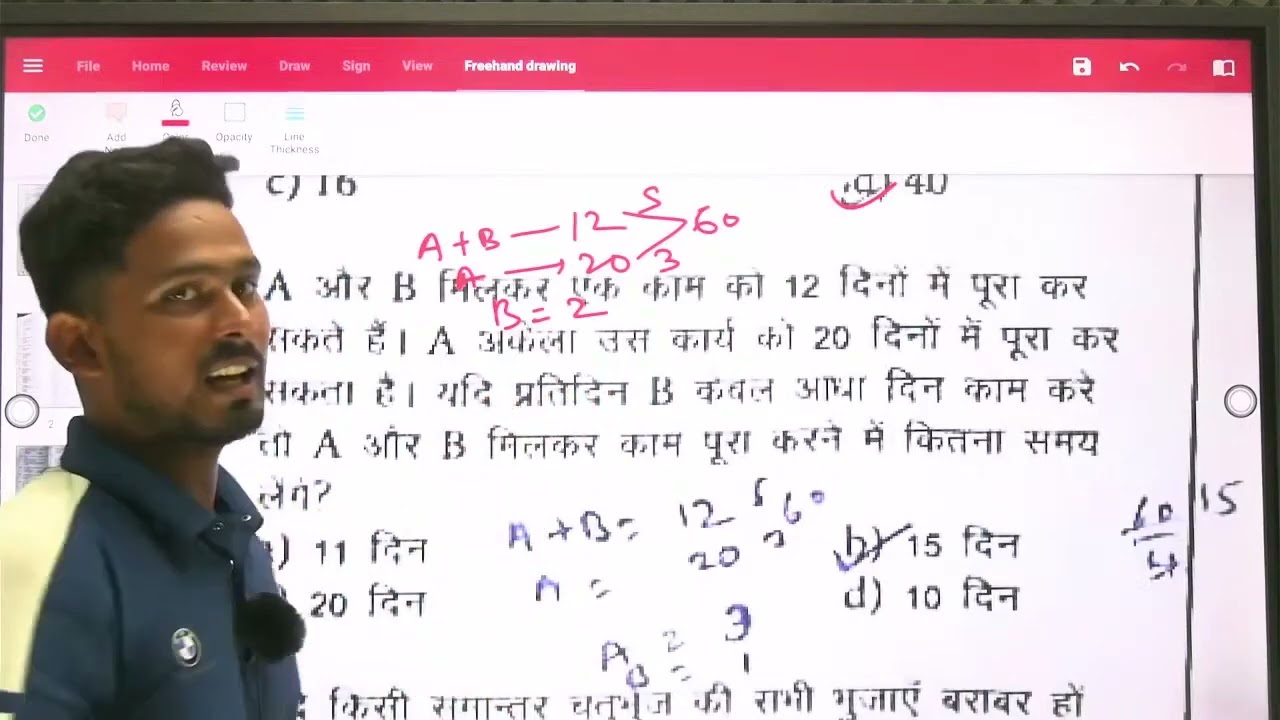 File Home Review Draw Sign View Freehand drawing
Done Add Opacity Line Thickness
c) 16 d) 40
A + B — 12 5 60
A → 20 3
A और B मिलकर एक काम को 12 दिनों में पूरा कर
B = 2
सकते हैं। A अकेला उस कार्य को 20 दिनों में पूरा कर
सकता है। यदि प्रतिदिन B केवल आधा दिन काम करे
तो A और B मिलकर काम पूरा करने में कितना समय
लेंगे?
A + B = 12 5 60
A = 20 3
) 11 दिन b) 15 दिन
60/4 15
20 दिन d) 10 दिन
A = 3
B = 1
किसी समान्तर चतुर्भुज की सभी भुजाएं बराबर हों
2